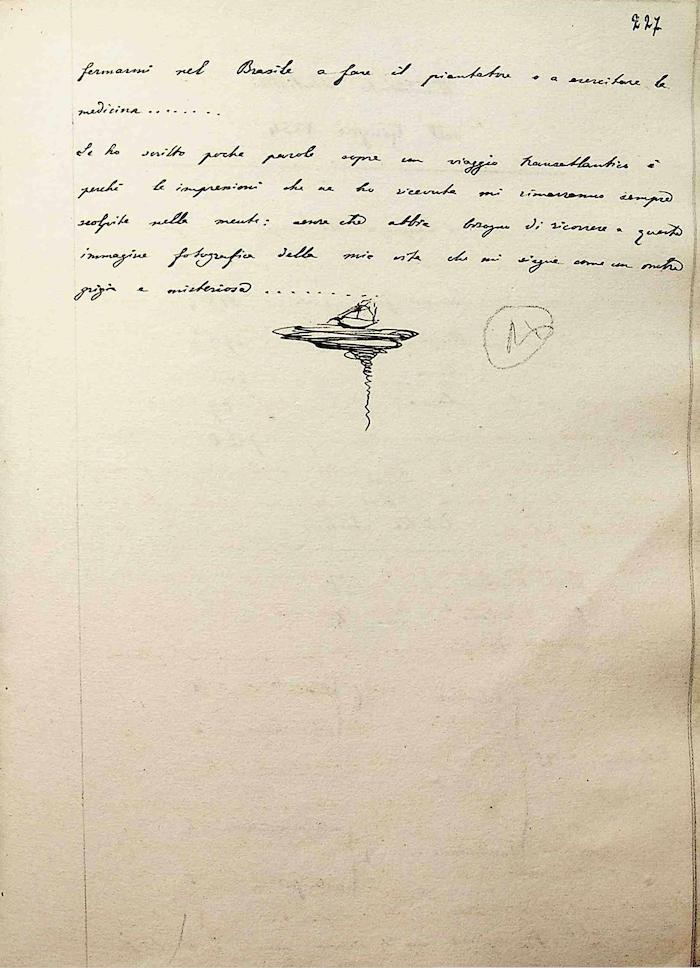 227
fermarmi nel Brasile a fare il piantatore o a esercitare la
medicina........
Se ho scritto poche parole sopra un viaggio transatlantico è
perchè le impressioni che ne ho ricevute mi rimarranno sempre
scolpite nella mente: senza che abbia bisogno di ricorrere a questa
immagine fotografica della mia vita che mi segue come un ombra
grigia e misteriosa..........